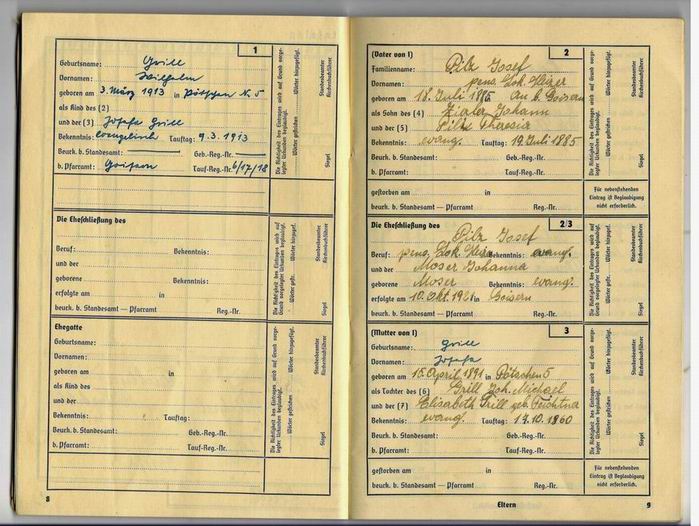 1
Geburtsname: Grill
Vornamen: Wilhelm
geboren am 3. März 1913 in Pötschen N. 5
als Kind des (2)
und der (3) Josefa Grill
Bekenntnis: evangelisch Tauftag: 9.3.1913
Beurk. b. Standesamt: Geb.-Reg.-Nr.
b. Pfarramt: Goisern Tauf-Reg.-Nr. 6/17/18
Die Richtigkeit des Eintrages wird auf Grund vorgelegter Urkunden beglaubigt.
Wörter gestrichen Wörter hinzugefügt.
Siegel Standesbeamter Kirchenbuchführer
Die Eheschließung des
Beruf: Bekenntnis:
und der
geborene Bekenntnis:
erfolgte am in
beurk. b. Standesamt — Pfarramt Reg.-Nr.
Die Richtigkeit des Eintrages wird auf Grund vorgelegter Urkunden beglaubigt.
Wörter gestr. Wörter hinzugef.
Siegel Standesbeamter Kirchenbuchführer
Ehegatte
Geburtsname:
Vornamen:
geboren am in
als Kind des
und der
Bekenntnis: Tauftag:
Beurk. b. Standesamt: Geb.-Reg.-Nr.
b. Pfarramt: Tauf-Reg.-Nr.
Die Richtigkeit des Eintrages wird auf Grund vorgelegter Urkunden beglaubigt.
Wörter gestrichen Wörter hinzugefügt.
Siegel Standesbeamter Kirchenbuchführer
8
(Vater von 1) 2
Familienname: Pilz Josef
Vornamen: pens. Lok. Heizer
geboren am 18. Juli 1885 in Goisern
als Sohn des (4) Johann
und der (5) Pilz Theresia
Bekenntnis: evang. Tauftag: 19. Juli 1885
Beurk. b. Standesamt: Geb.-Reg.-Nr.
b. Pfarramt: Tauf-Reg.-Nr.
Die Richtigkeit des Eintrages wird auf Grund vorgelegter Urkunden beglaubigt.
Wörter gestrichen Wörter hinzugefügt.
Siegel Standesbeamter Kirchenbuchführer
gestorben am in
beurk. b. Standesamt — Pfarramt Reg.-Nr.
Für nebenstehenden
Eintrag ist Beglaubigung
nicht erforderlich.
Die Eheschließung des 2/3
Pilz Josef
Beruf: pens. Lok. Heizer Bekenntnis: evang.
und der Moser Johanna
geborene Moser Bekenntnis: evang.
erfolgte am 10. Okt. 1921 in Goisern
beurk. b. Standesamt — Pfarramt Reg.-Nr.
Die Richtigkeit des Eintrages wird auf Grund vorgelegter Urkunden beglaubigt.
Wörter gestr. Wörter hinzugef.
Siegel Standesbeamter Kirchenbuchführer
(Mutter von 1) 3
Geburtsname: Grill
Vornamen: Josefa
geboren am 15. April 1891 in Pötschen 5
als Tochter des (6) Grill Joh. Michael
und der (7) Elisabeth Grill geb.
Bekenntnis: evang. Tauftag: 19.10.1860
Beurk. b. Standesamt: Geb.-Reg.-Nr.
b. Pfarramt: Tauf-Reg.-Nr.
Die Richtigkeit des Eintrages wird auf Grund vorgelegter Urkunden beglaubigt.
Wörter gestrichen Wörter hinzugefügt.
Siegel Standesbeamter Kirchenbuchführer
gestorben am in
beurk. b. Standesamt — Pfarramt Reg.-Nr.
Für nebenstehenden
Eintrag ist Beglaubigung
nicht erforderlich.
Eltern
9